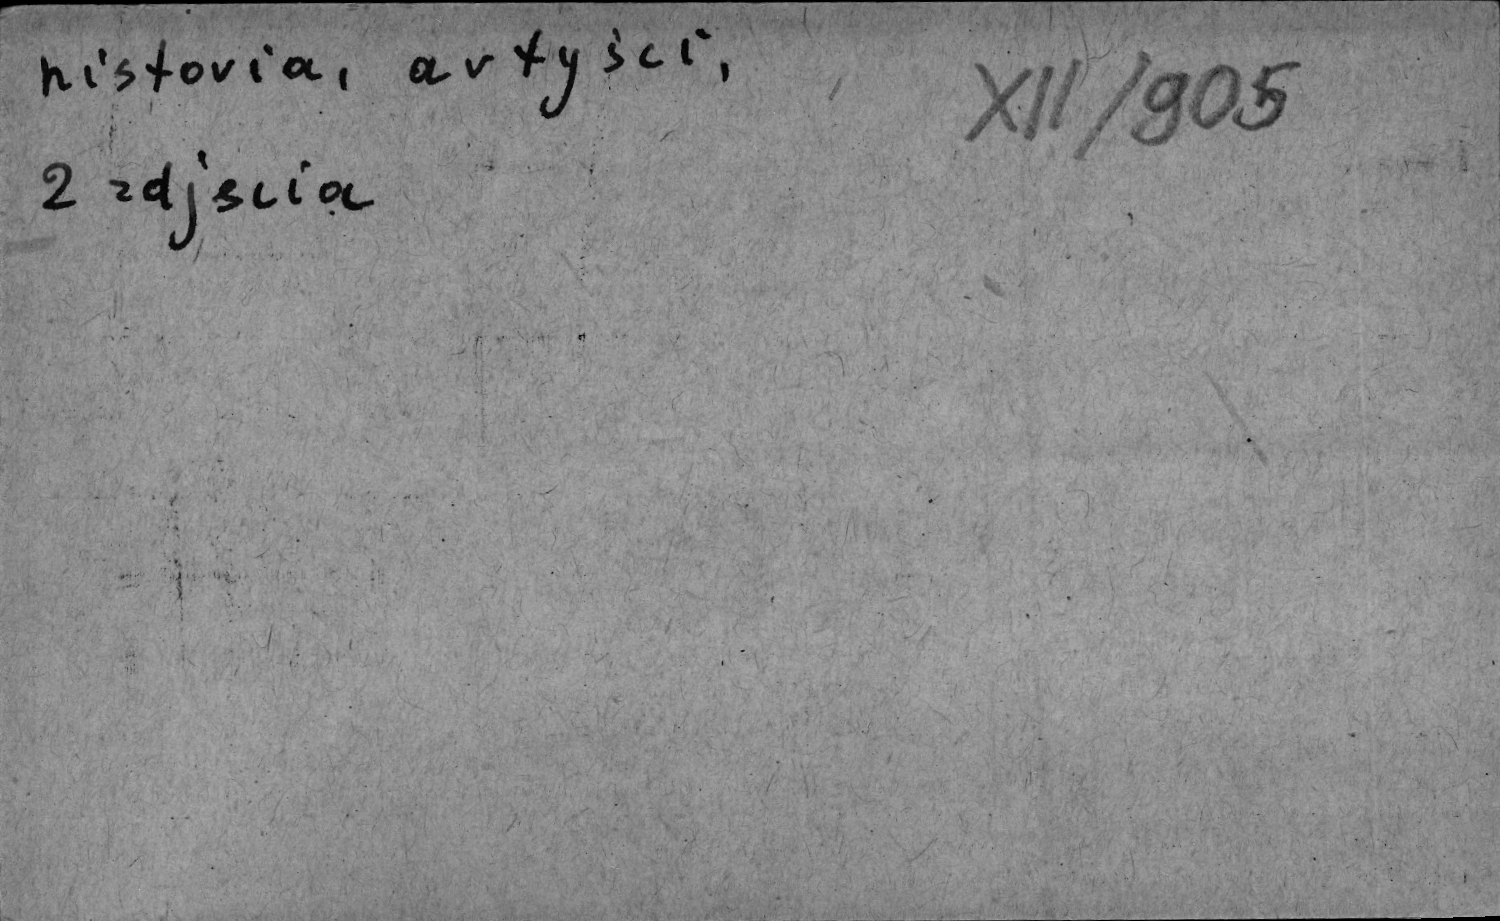 historia, artyści,
XII/905
2 zdjscia